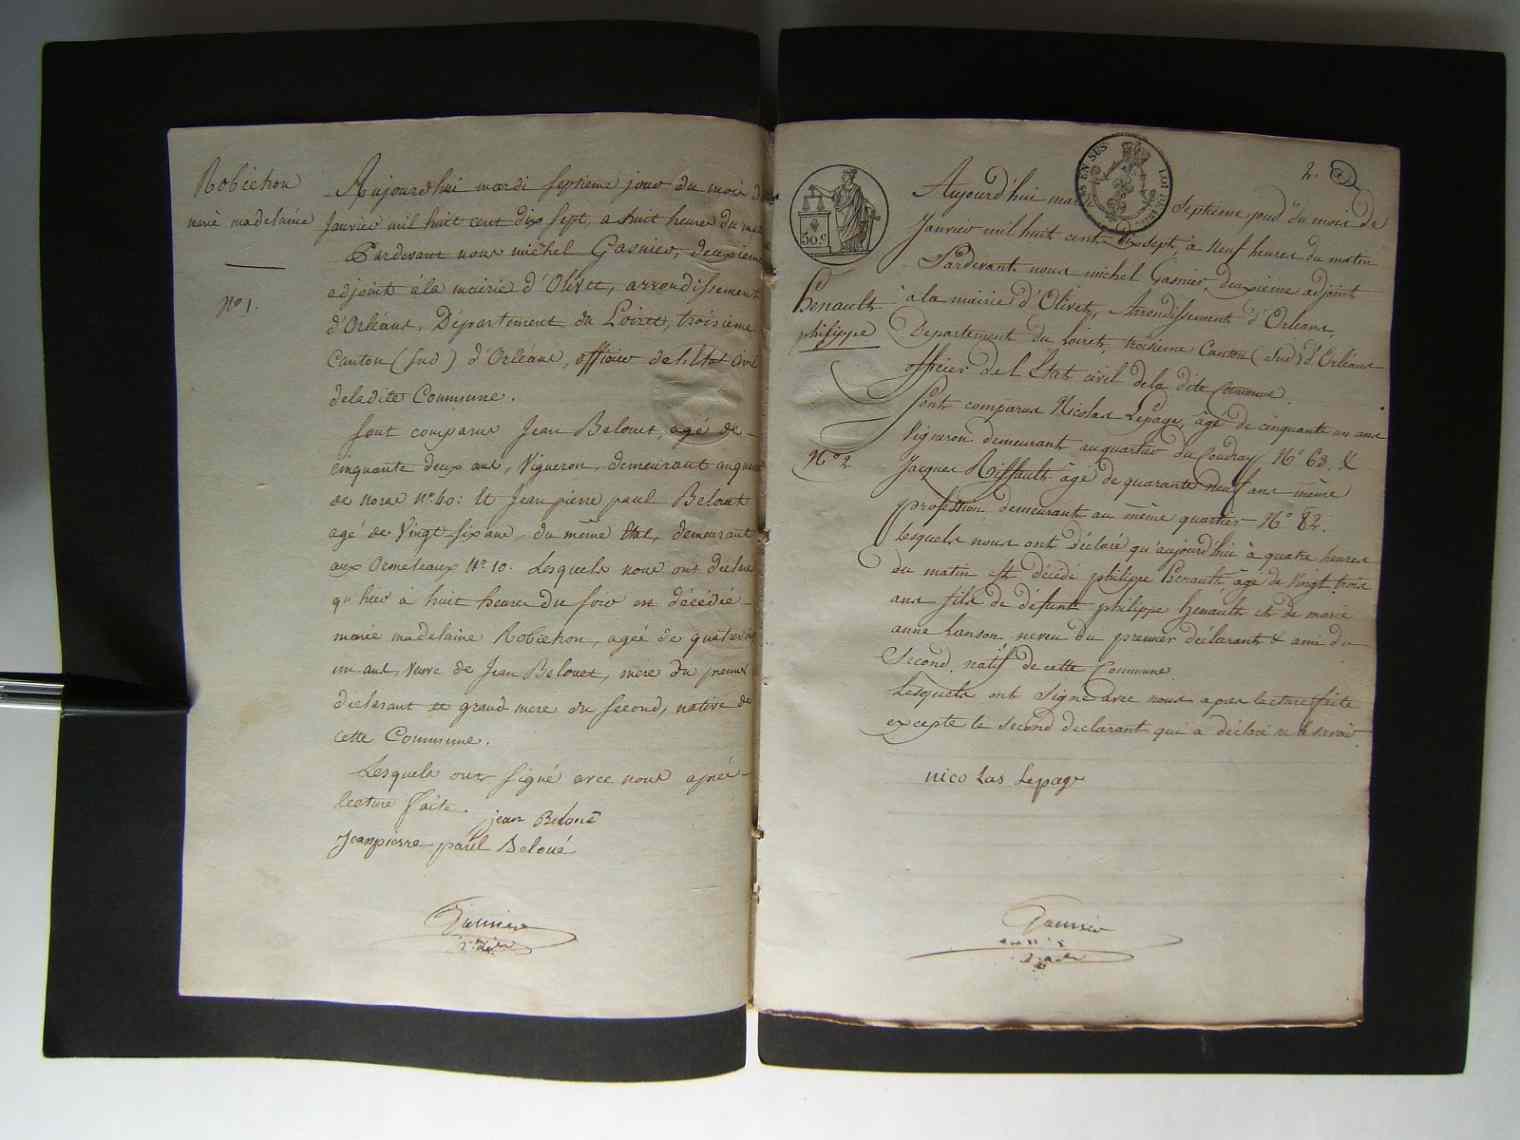 Robichon
marie madelaine
N° 1.
Aujourdhui mardi septieme jour du mois de
Janvier mil huit cent dix sept, a huit heures du
Pardevant nous michel Gasnier, deuxieme
adjoint à la mairie d'Olivet, arrondissement
d'Orléans, Département du Loiret, troisieme
Canton (sud) d'Orléans, officier de l'Etat Civil
de la dite Commune.
Sont comparus Jean Belouet, agé de
cinquante deux ans, Vigneron, demeurant au
de N° 60: Et Jean pierre paul Belouet
agé de Vingt six ans, du même Etat, demeurant
aux Ormeteaux N° 10. Lesquels nous ont déclaré
qu'hier à huit heures du soir est décédée
marie madelaine Robichon, agée de quatre
un ans, Veuve de Jean Belouet, mere du premier
déclarant et grand mere du second, native de
cette Commune.
Lesquels ont signé avec nous après
lecture faite.
jean Beloué
Jeanpierre paul Beloué
Gasnier
2. 
50 c
EN SUS
Henault
philippe
N° 2
Aujourd'hui mardi Septieme jour du mois de
Janvier mil huit cent dix sept, à neuf heures du matin
Pardevant nous michel Gasnier deuxieme adjoint
à la mairie d'Olivet, Arrondissement d'Orleans,
Departement du Loiret, troisieme Canton (Sud) d'Orléans
officier de l'Etat civil de la dite Commune.
Sont comparus Nicolas Lepage, âgé de cinquante un ans
Vigneron demeurant au quartier du Coudray N° 63. &
Jacques Riffault âgé de quarante neuf ans même
profession demeurant au même quartier N° 82.
Lesquels nous ont déclaré qu'aujourd'hui à quatre heures
du matin est décédé philippe henault âgé de vingt trois
ans fils de défunt philippe henault et de marie
anne Lanson, neveu du premier déclarant & ami du
Second, natif de cette Commune
Lesquels ont Signé avec nous apres lecture faite
excepté le second declarant qui a déclaré ne le savoir
nico Las Lepage
Gasnier